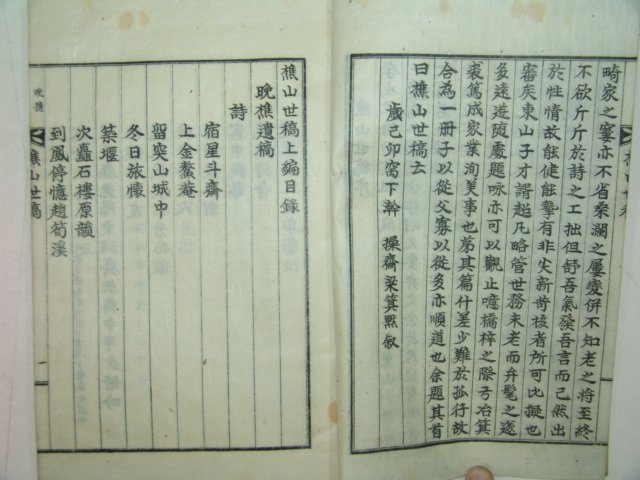 畸家之窶亦不省桑瀾之屢變倂不知老之將至終
不欲斤斤於詩之工拙但舒吾氣發吾言而已然出
於性情故能健能摯有非尖新苛核者所可比擬也
審矣東山子才謂起凡略管世務未老而弁髦之遂
多遠遊隨處題咏亦可以觀止噫橋梓之際弓冶箕
裘篤成家業洵美事也苐其篇什差少難於孤行故
合為一冊子以從父寡以從多亦順道也余題其首
曰樵山世稿云
歲己卯窩下澣 操齋梁箕默叙
樵山世稿上編目錄
晩樵遺稿
詩
宿星斗齋
上金鰲菴
留突山城中
冬日旅懷
築堰
次矗石樓原韻
到鳳停憶趙筍溪
樵山世稿
一
晩樵